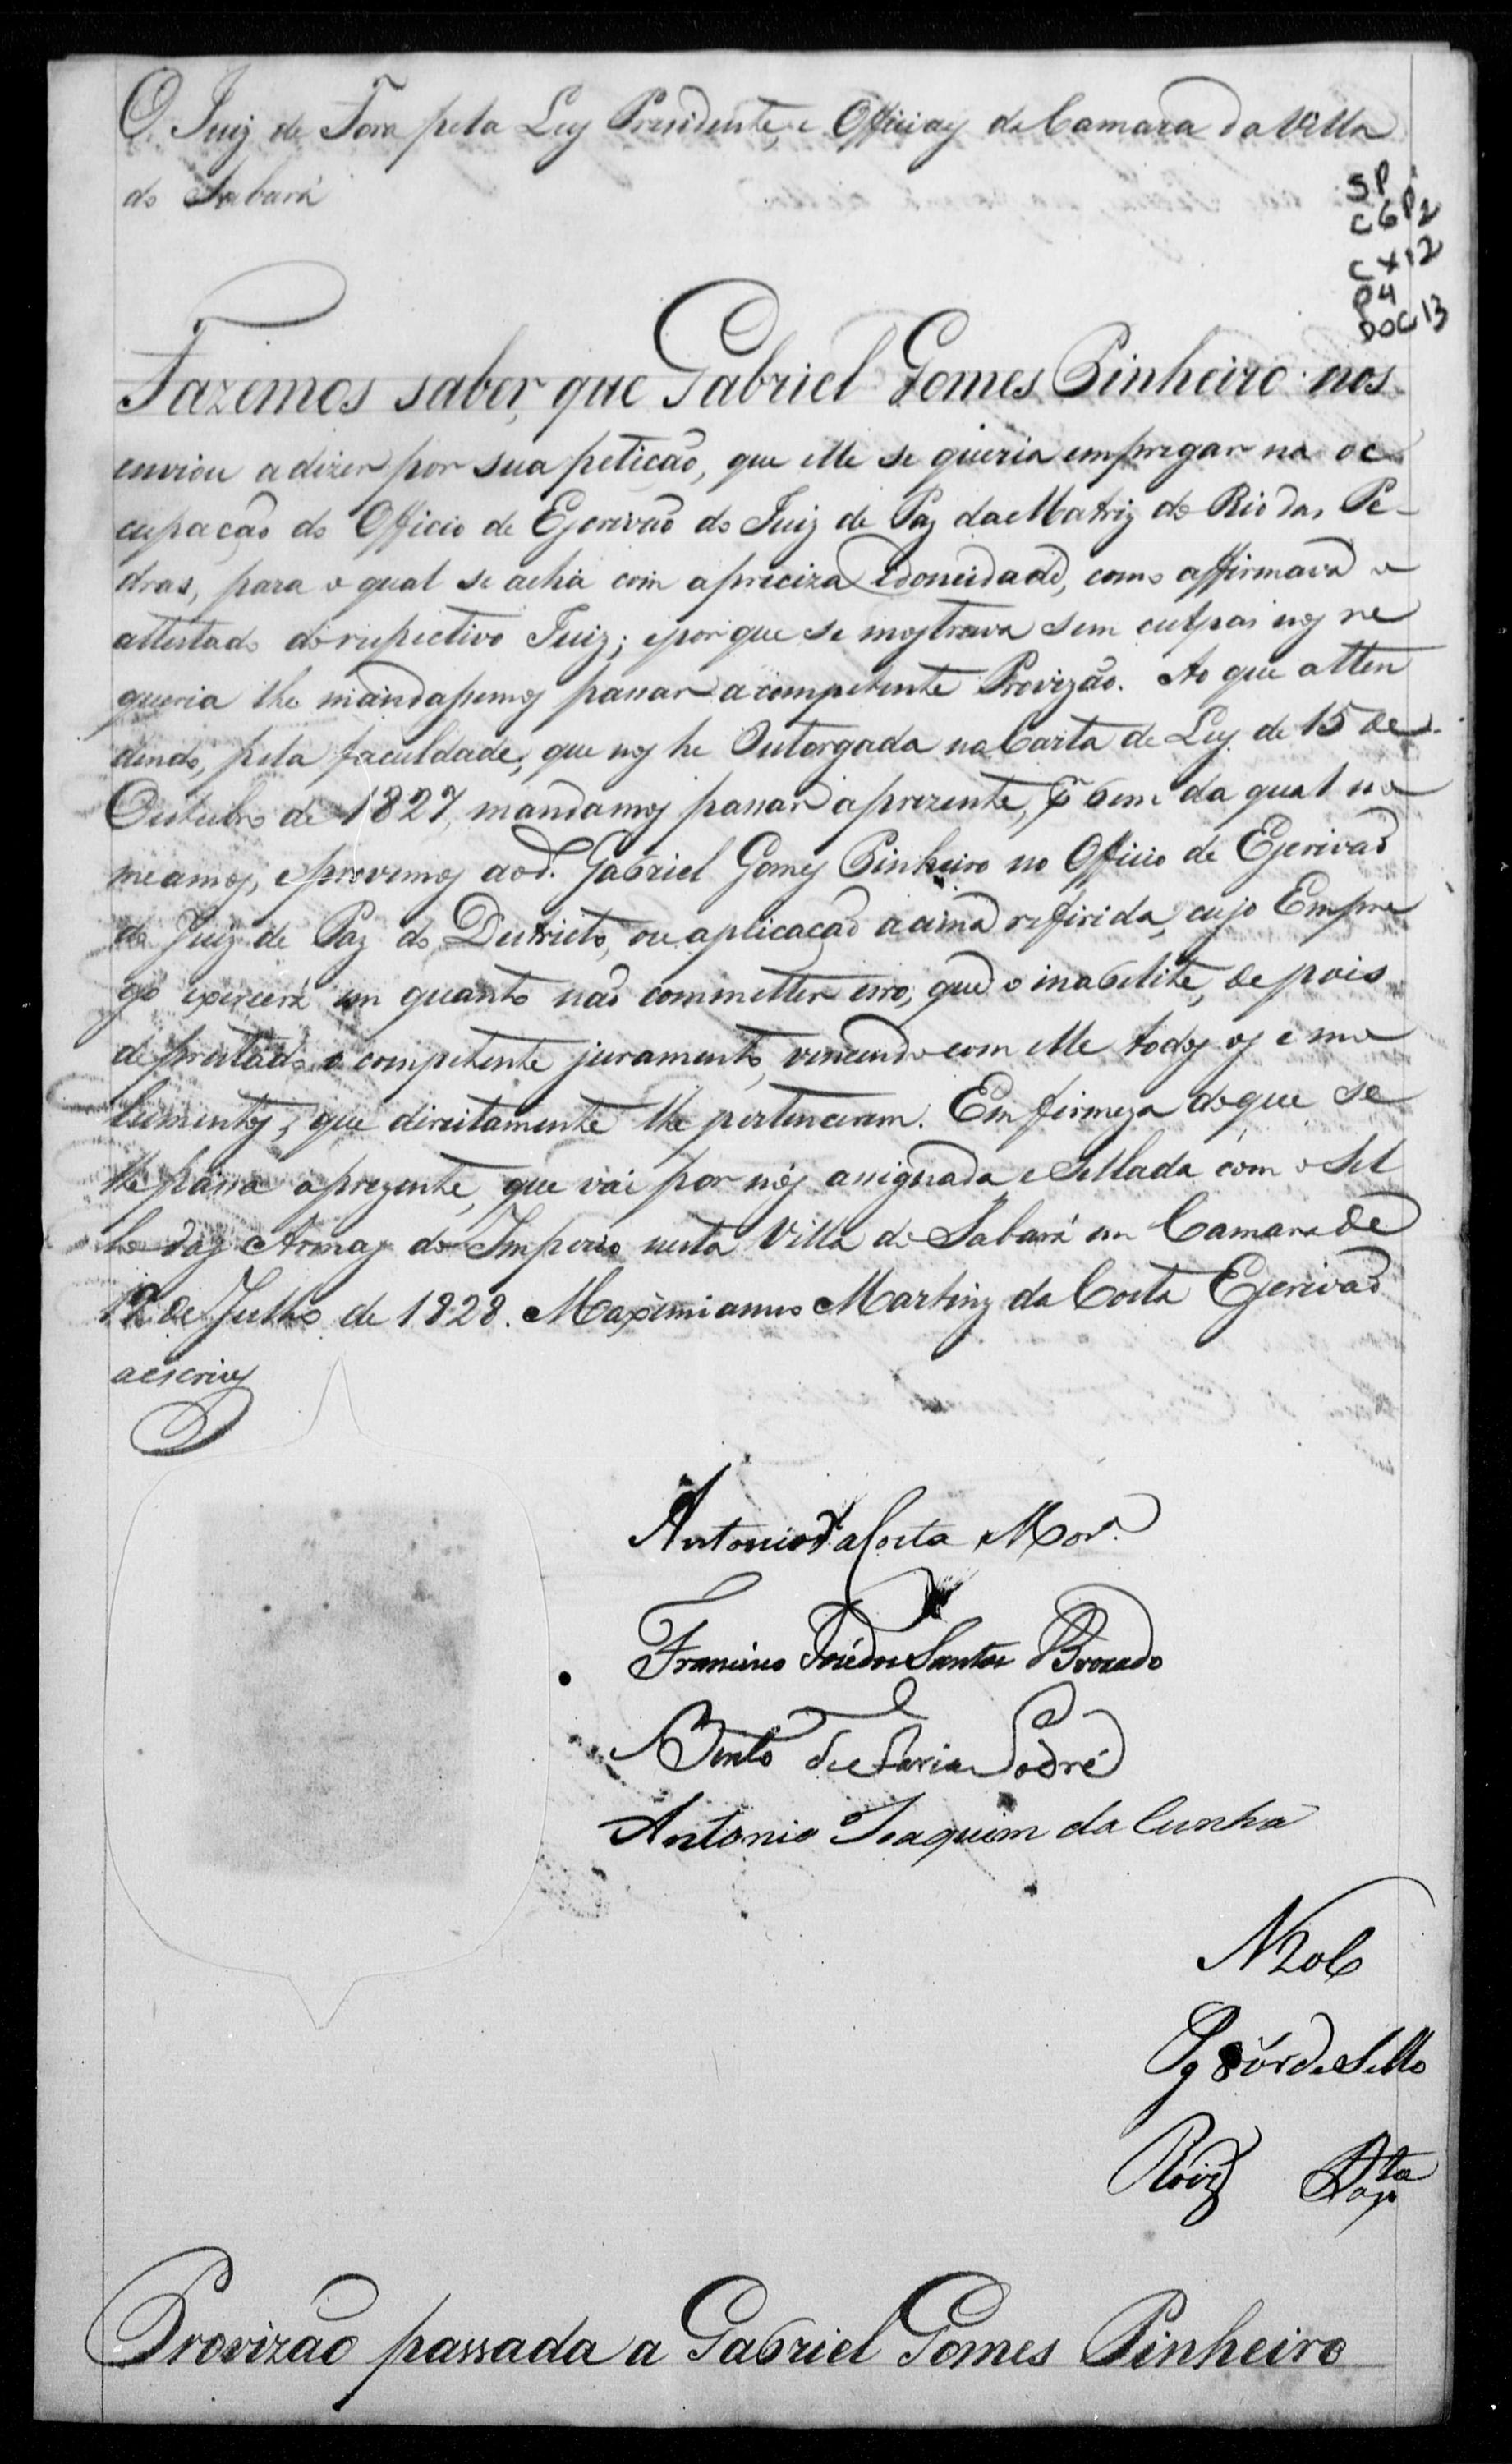 O Juiz de Fora pela Ley Presidente, e Officiaes da Camara da Villa
do Sabará
SP
C6P2
CX12
P4
DOC13
Fazemos saber, que Gabriel Gomes Pinheiro nos
enviou a dizer por sua petição, que elle se queria empregar na oc
cupação do Officio de Escrivaõ do Juiz de Paz da Matriz do Rio das Pe-
dras, para o qual se acha com a preciza idoneidade, como affirmava o
attestado do respectivo Juiz; e porque se mostrava sem culpas nos re
queria lhe mandassemos passar a competente Provizão. Ao que atten
dendo, pela faculdade, que nos he Outorgada na Carta de Ley de 15 de
Outubro de 1827, mandamos passar a prezente, por bem da qual no
meamos, e provemos ao d.º Gabriel Gomes Pinheiro no Officio de Escrivaõ
do Juiz de Paz do Destricto, ou aplicacaõ acima referida, cujo Empre
go exercerá em quanto naõ commetter erro, que o inabilite, depois
de prestado o competente juramento, vencendo com elle todos os emo
lumentos, que direitamente lhe pertencerem. Em firmeza do que se
lhe passa a prezente, que vai por nós assignada e Sellada com o Sel
lo das Armas do Imperio nesta Villa do Sabará em Camara de
12 de Julho de 1828. Maximianno Martins da Costa Escrivaõ
a escrivy
Antonio da Costa Mor.ª
Francisco José dos Santos Brocado
Bento de Faria Sodré
Antonio Joaquim da Cunha
N 206
Pg 80 rs de Sello
Provizão passada a Gabriel Gomes Pinheiro